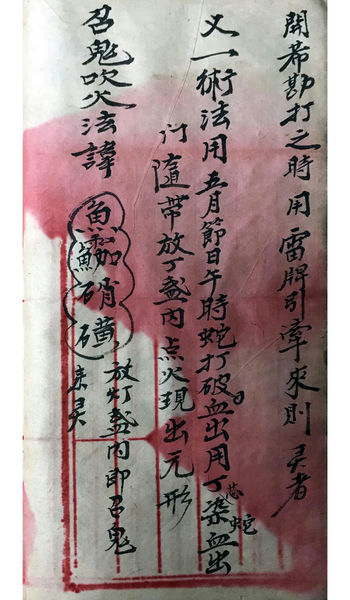 開希勘打之時用雷牌引𩆜來則灵者
又一術法用五月節日午時蛇打破血出用丁染血出
芯蛇
訃隨帶放丁盞內点火現出元形
召鬼吹火法諱
硝磺
放灯盞內即召鬼
来灵